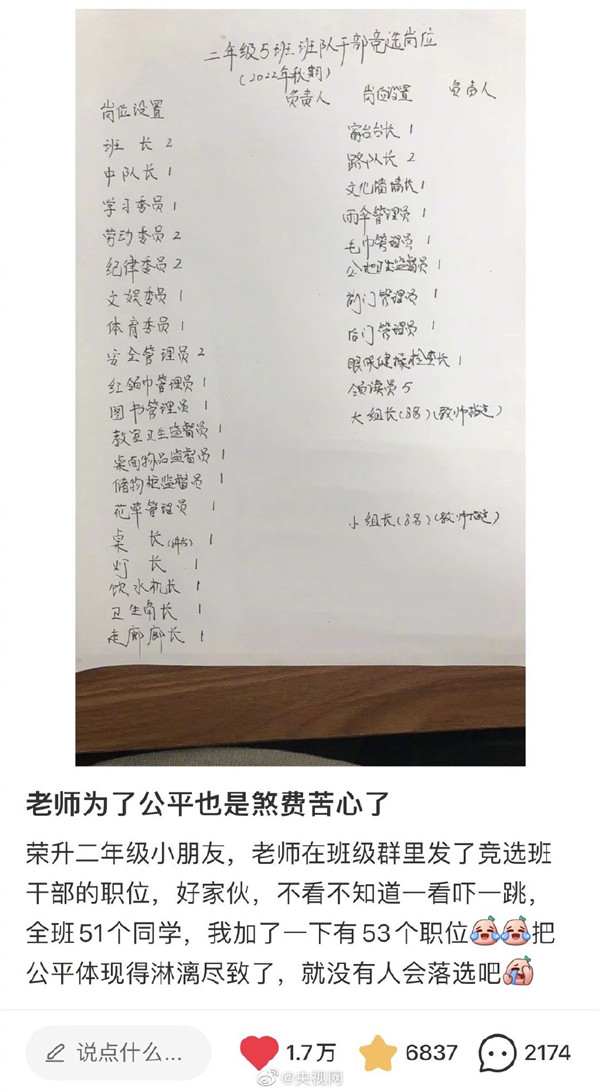 二年级5班班队干部竞选岗位
(2022年秋期)
岗位设置 负责人 岗位设置 负责人
班 长 2
中队长 1
学习委员 1
劳动委员 2
纪律委员 2
文娱委员 1
体育委员 1
安全管理员 2
红领巾管理员 1
图书管理员 1
教室卫生监督员 1
桌面物品监督员 1
储物柜监督员 1
花草管理员 1
桌 长
灯 长 1
饮水机长 1
卫生角长 1
走廊廊长 1
窗台台长 1
路队长 2
文化墙墙长 1
雨伞管理员 1
毛巾管理员 1
公地卫生监督员 1
前门管理员 1
后门管理员 1
眼保健操检查长 1
领读员 5
大组长(8名)(教师指定)
小组长(8名)(教师指定)
老师为了公平也是煞费苦心了
荣升二年级小朋友，老师在班级群里发了竞选班
干部的职位，好家伙，不看不知道一看吓一跳，
全班51个同学，我加了一下有53个职位把
公平体现得淋漓尽致了，就没有人会落选吧
说点什么... 1.7万 6837 2174
@央视网